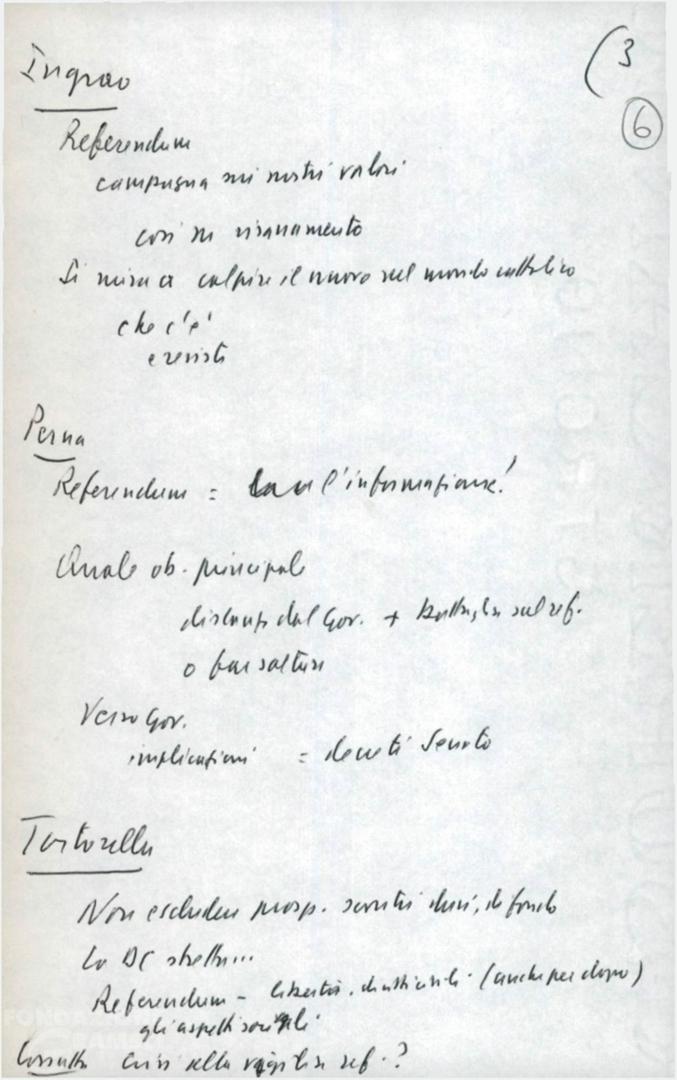 (3
6
Ingrao
Referendum
campagna sui nostri valori
così su risanamento
Si mira a colpire il nuovo nel mondo cattolico
che c'è
e resiste
Perna
Referendum = l'informazione!
Quale ob. principale
dal Gov. + battaglia sul ref.
o far saltare
Verso Gov.
implicazioni = decreti Senato
Tortorella
Non escludere prosp. scontri duri, di fondo
La DC stretta...
Referendum - libertà. (anche per dopo)
gli aspetti sociali
Cossutta Crisi alla vigilia ref.?
FONDAZIONE